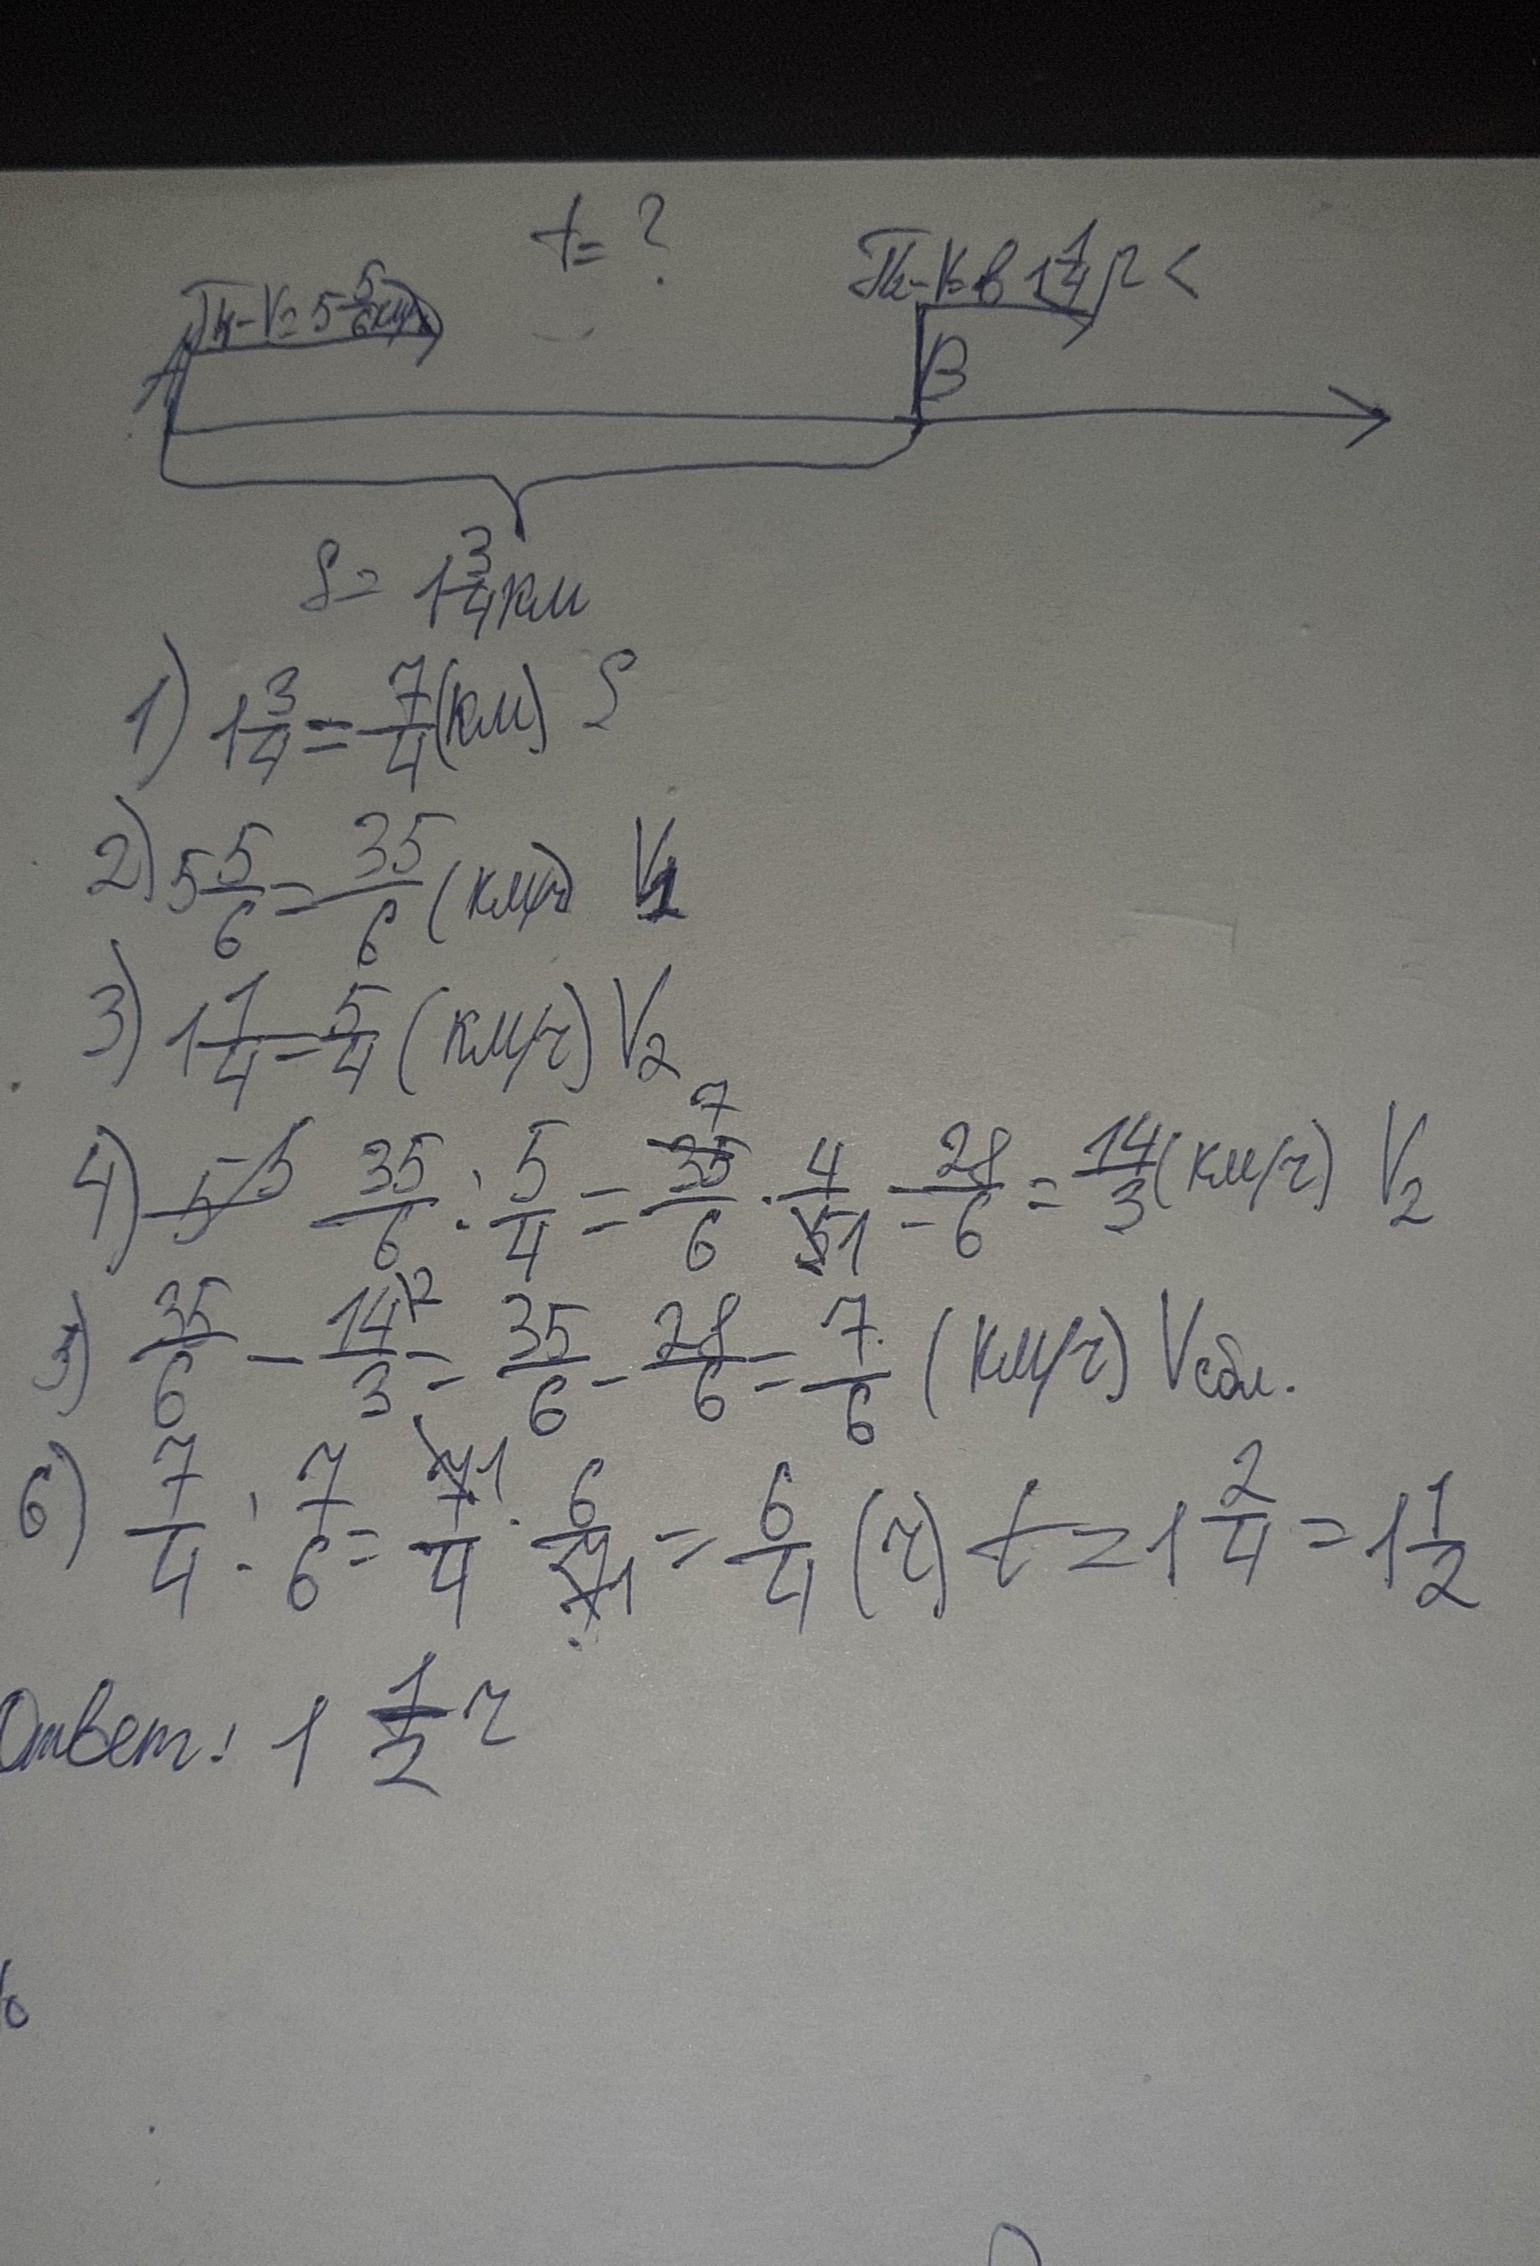 t = ?
П-V= 5 5/6 км/ч
П-V= в 1 1/4 р <
A
B
S = 1 3/4 км
1) 1 3/4 = 7/4 (км) S
2) 5 5/6 = 35/6 (км/ч) V1
3) 1 1/4 = 5/4 (км/ч) V2
4) 35/6 : 5/4 = 35/6 · 4/5 = 28/6 = 14/3 (км/ч) V2
5) 35/6 - 14/3 = 35/6 - 28/6 = 7/6 (км/ч) Vсбл.
6) 7/4 : 7/6 = 7/4 · 6/7 = 6/4 (ч) t = 1 2/4 = 1 1/2
Ответ: 1 1/2 ч